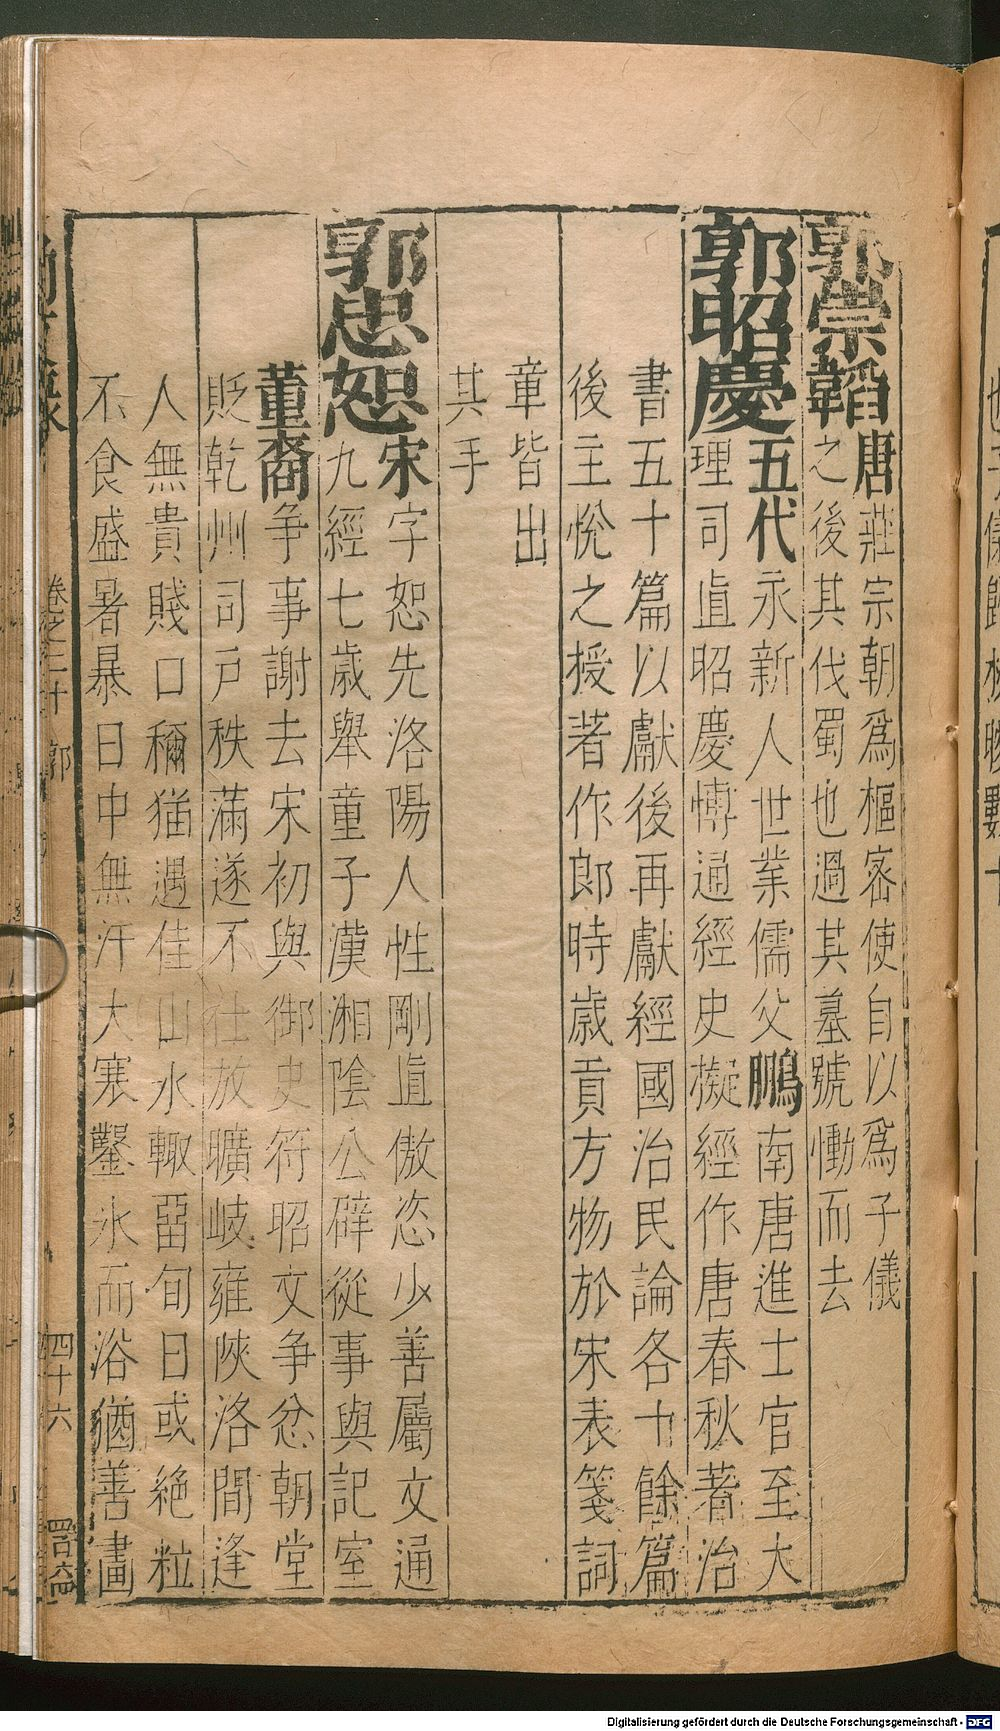 郭崇韜唐莊宗朝爲樞密使自以爲子儀
之後其伐蜀也過其墓號慟而去
郭昭慶五代永新人世業儒父鵬南唐進士官至大
理司直昭慶愽通經史擬經作唐春秋著治
書五十篇以獻後再獻經國治民論各十餘篇
後主悅之授著作郎時歲貢方物於宋表箋詞
章皆出
其手
郭忠恕宋字恕先洛陽人性剛直傲恣少善屬文通
九經七歲舉童子漢湘陰公辟從事與記室
董裔爭事謝去宋初與御史符昭文爭忿朝堂
貶乾州司戶秩滿遂不仕放曠岐雍陝洛間逢
人無貴賤口稱猫遇佳山水輙畱旬日或絶粒
不食盛暑暴日中無汗大寒鑿氷而浴猶善畫
卷之二十 郭
四十六
Digitalisierung gefördert durch die Deutsche Forschungsgemeinschaft - DFG